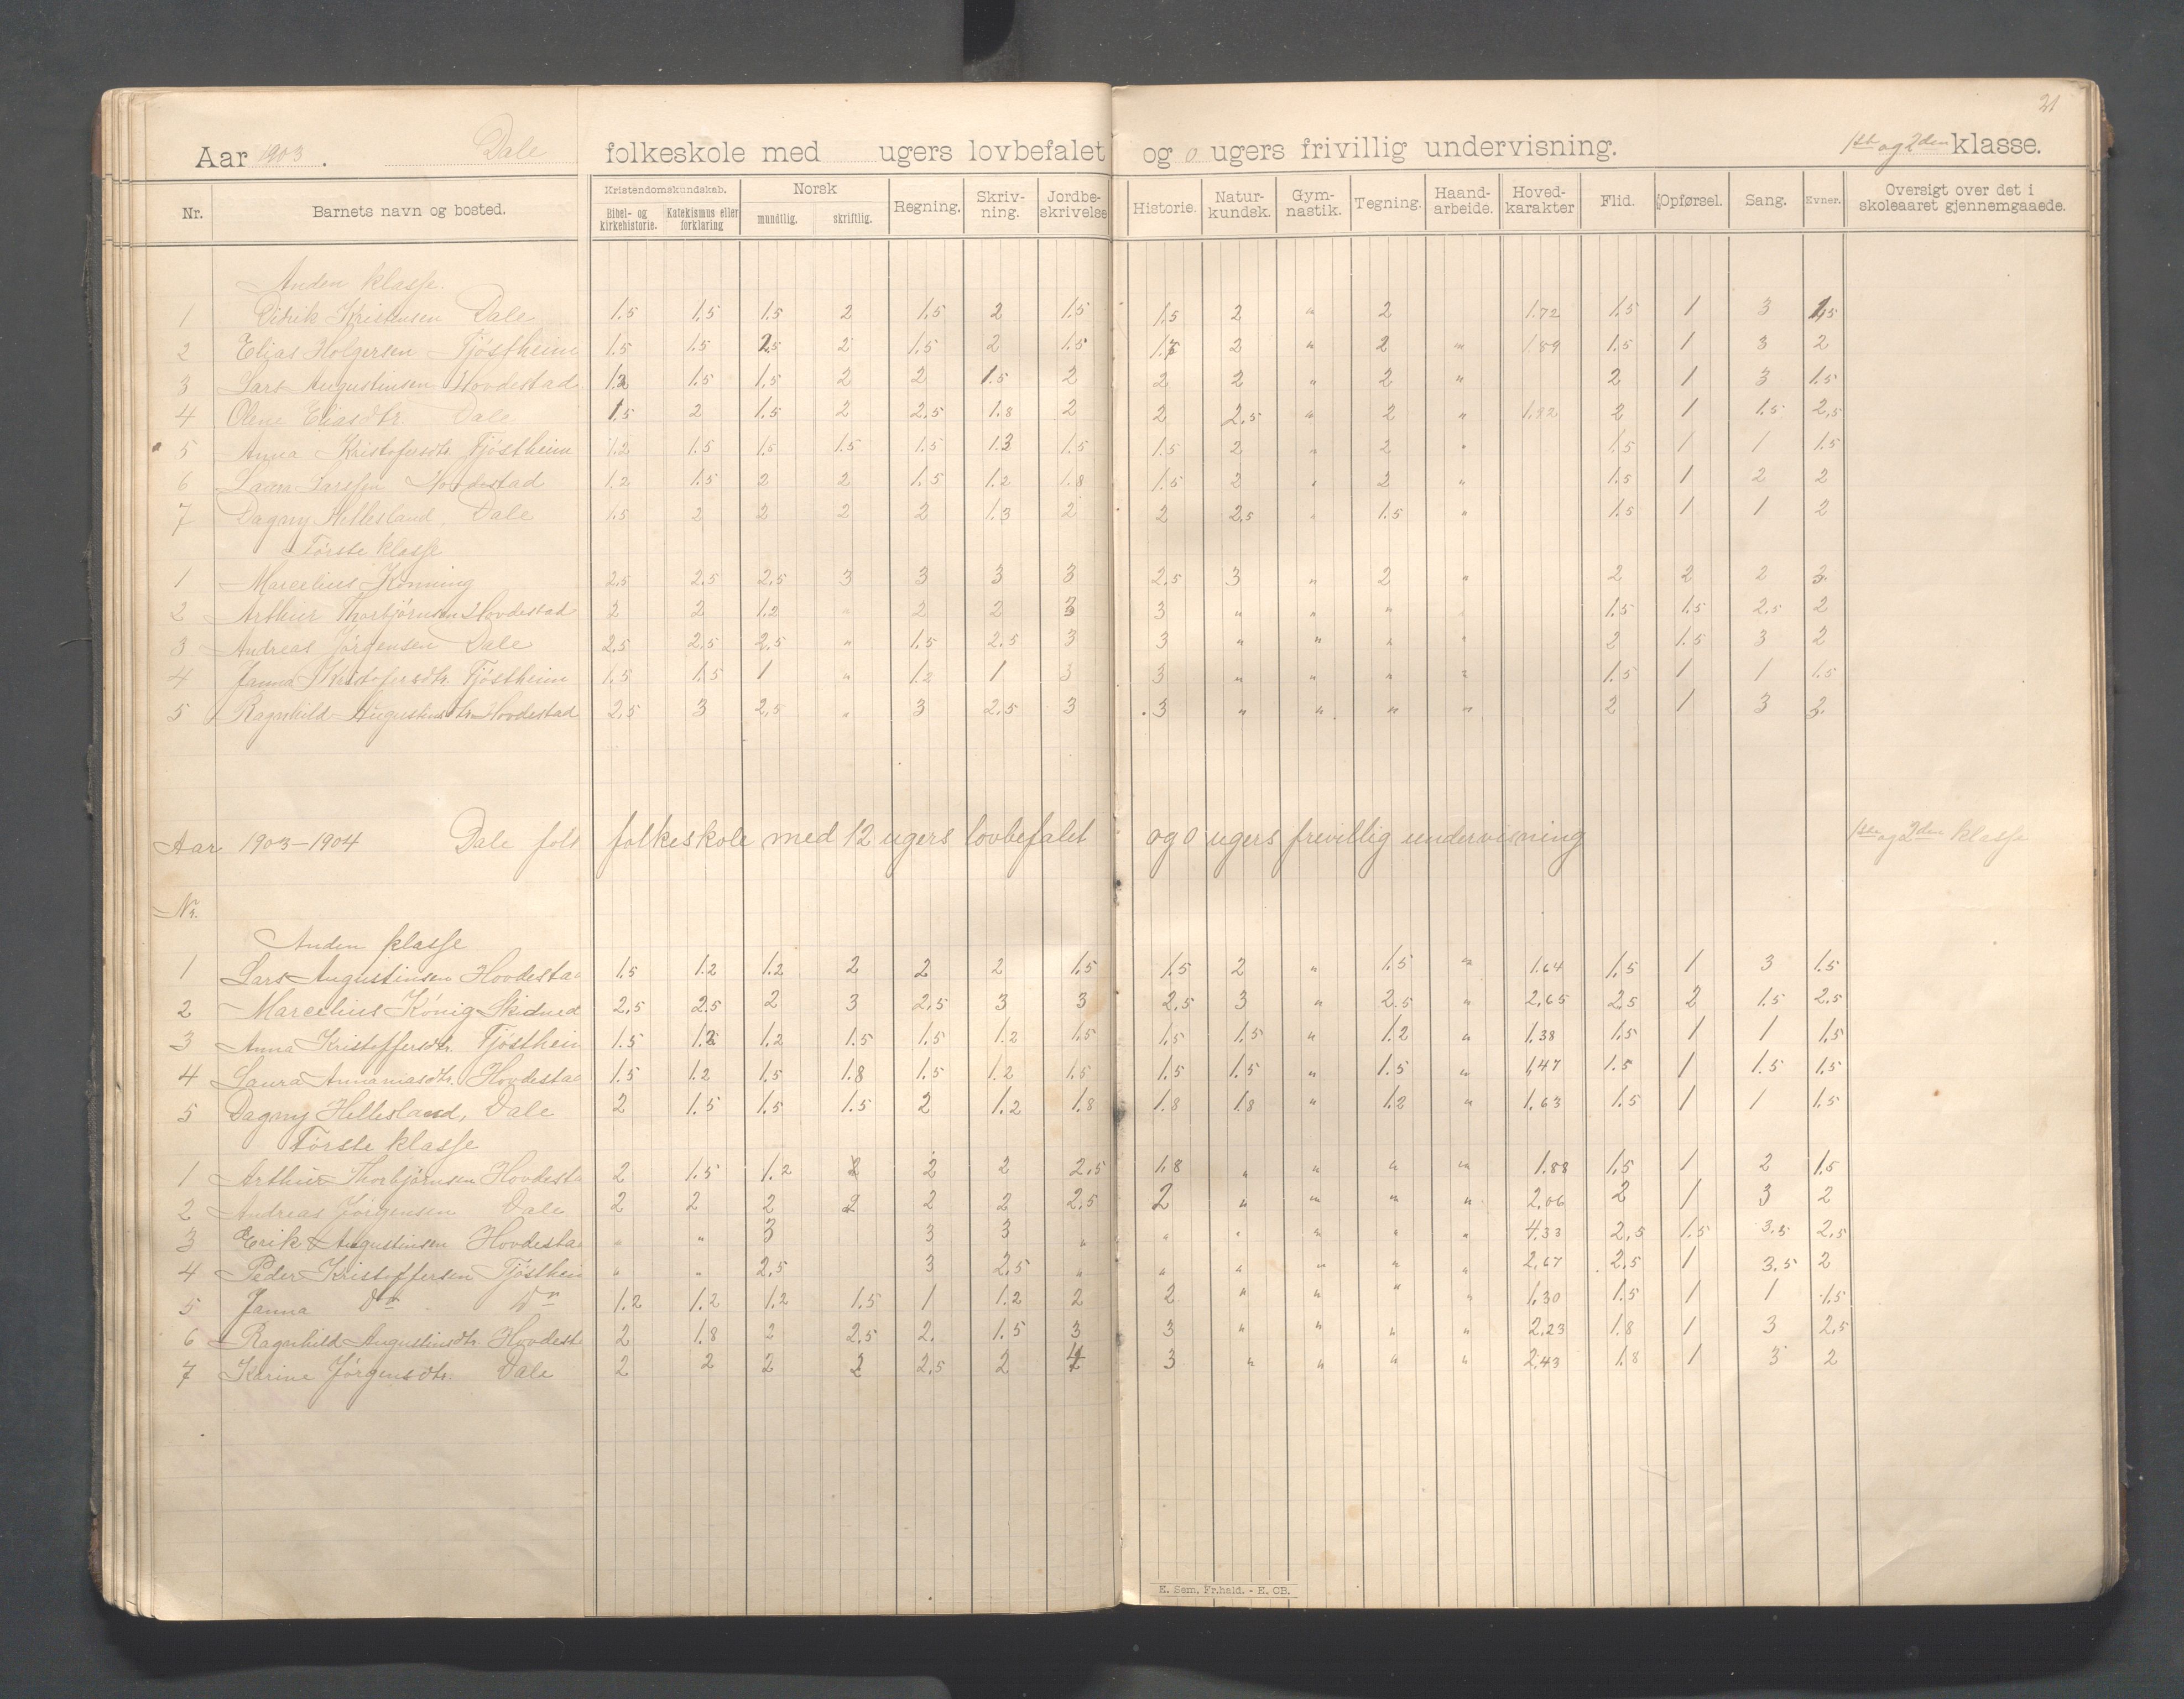 21
Aar 1903. Dale folkeskole med ugers lovbefalet og 0 ugers frivillig undervisning. 1ste og 2den klasse.
Nr. Barnets navn og bosted. Kristendomskundskab. Bibel- og kirkehistorie. Katekismus eller forklaring Norsk mundtlig. skriftlig. Regning. Skriv-ning. Jordbe-skrivelse Historie. Natur-kundsk. Gym-nastik. Tegning. Haand-arbeide. Hoved-karakter Flid. Opførsel. Sang. Evner. Oversigt over det i skoleaaret gjennemgaaede.
Anden klasse.
1 Didrik Kristensen Dale 1.5 1.5 1.5 2 1.5 2 1.5 1.5 2 " 2 1.72 1.5 1 3 1,5
2 Elias Holgersen Tjøstheim 1.5 1.5 2.5 2 1.5 2 1.5 2 " 2 " 1.89 1.5 1 3 2
3 Lars Augustinsen Hovdestad 1.2 1.5 1.5 2 2 1.5 2 2 2 " 2 " 2 1 3 1.5
4 Olene Eliasdtr. Dale 1.5 2 1.5 2 2.5 1.8 2 2 2.5 " 2 " 1.92 2 1 1.5 2,5
5 Anna Kristofersdtr. Tjøstheim 1.2 1.5 1.5 1.5 1.5 1.3 1.5 1.5 2 " 2 " 1.5 1 1 1.5
6 Laura Larssen Hovdestad 1.2 1.5 2 2 1.5 1.2 1.8 1.5 2 " 2 " 1.5 1 2 2
7 Dagny Hellesland, Dale 1.5 2 2 2 2 1.3 2 2 2.5 " 1.5 " 1.5 1 1 2
Første klasse
1 Marcelius Konning 2.5 2.5 2.5 3 3 3 3 2.5 3 " 2 " 2 2 2 3.
2 Arthur Thorbjørnsen Hovdestad 2 2 1.2 " 2 2 3 3 " " " " 1.5 1.5 2.5 2
3 Andreas Jørgensen Dale 2.5 2.5 2.5 " 1.5 2.5 3 3 " " " " 2 1.5 3 2
4 Janna Kristofersdtr. Tjøstheim 1.5 1.5 1 " 1.2 1 3 3 " " " " 1.5 1 1 1.5
5 Ragnhild Augustinsdtr. Hovdestad 2.5 3 2.5 " 3 2.5 3 3 " " " " 2 1 3 3.
Aar 1903-1904 Dale folk folkeskole med 12 ugers lovbefalet og 0 ugers frevillig undervisning 1ste og 2den klasse
Nr.
Anden klasse
1 Lars Augustinsen Hovdestad 1.5 1.2 1.2 2 2 2 1.5 1.5 2 " 1.5 " 1.64 1.5 1 3 1.5
2 Marcelius König Skidned 2.5 2.5 2 3 2.5 3 3 2.5 3 " 2.5 " 2.65 2.5 2 1.5 2.5
3 Anna Kristoffersdtr. Tjøstheim 1.5 1.2 1.2 1.5 1.5 1.2 1.5 1.5 1.5 " 1.2 " 1.38 1.5 1 1 1.5
4 Laura Annaniasdtr. Hovdestad 1.5 1.2 1.5 1.8 1.5 1.2 1.5 1.5 1.5 " 1.5 " 1,47 1.5 1 1.5 1.5
5 Dagny Hellesland, Dale 2 1.5 1.5 1.5 2 1.2 1.8 1.8 1.8 " 1.2 " 1.63 1.5 1 1 1.5
Første klasse
1 Arthur Thorbjørnsen Hovdesta 2 1.5 1.2 2 2 2 2.5 1.8 " " " " 1.88 1.5 1 2 1.5
2 Andreas Jørgensen Dale 2 2 2 2 2 2 2.5 2 " " " " 2.06 2 1 3 2
3 Erik Augustinsen Hovdesta " " 3 3 3 " " " " " " 4.33 2.5 1.5 3.5 2.5
4 Peder Kristoffersen Tjøsthein " " 2.5 3 2.5 " " " " " " 2.67 2.5 1 3.5 2
5 Janna Do Do 1.2 1.2 1.2 1.5 1 1.2 2 2 " " " " 1.30 1.5 1 1 1.5
6 Ragnhild Augustinsdtr. Hovdest 2 1.8 2 2.5 2. 1.5 3 3 " " " " 2.23 1.8 1 3 2,5
7 Karine Jørgensdtr. Dale 2 2 2 2 2.5 2 4 3 " " " " 2.43 1.8 1 3 2
E. Sem, Fr.hald. - E. CB.